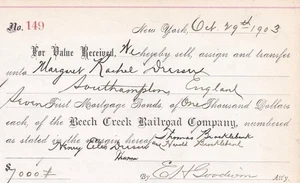 No. 149
New York, Oct. 29th 1903
For Value Received, We hereby sell, assign and transfer
unto Margaret Rachel
Southampton, England
Seven First Mortgage Bonds, of One Thousand Dollars
each, of the Beech Creek Railroad Company, numbered
as stated in the assign hereof Thomas Brocklebank
Henry
$7000# By E H Goodwin Att'y.